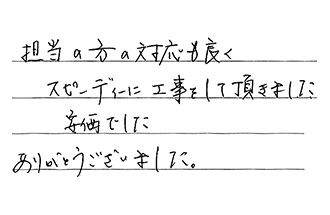 担当の方の対応も良く
スピーディーに工事をして頂きました
安価でした
ありがとうございました。